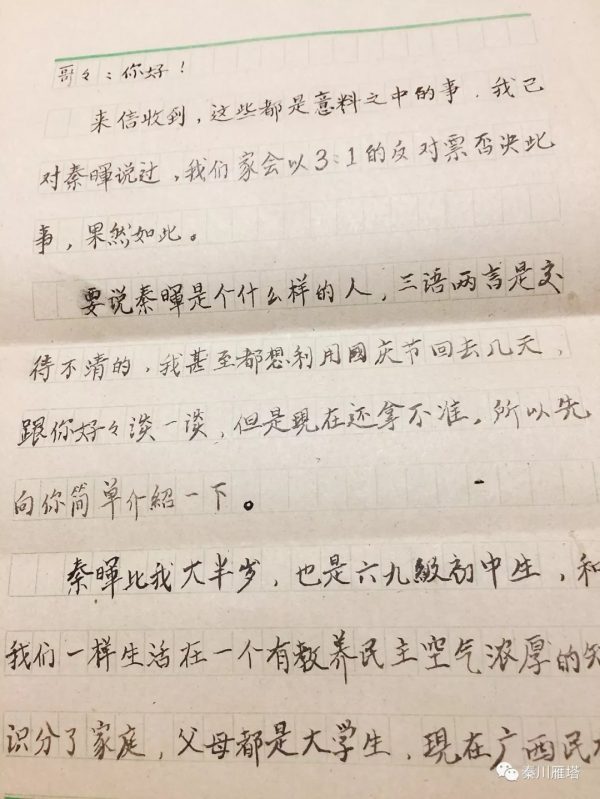 哥々：你好！
来信收到，这些都是意料之中的事．我已
对秦暉说过，我们家会以3:1的反对票否决此
事，果然如此。
要说秦暉是个什么样的人，三语两言是交
待不清的，我甚至都想利用國庆节回去几天，
跟你好々谈一谈，但是现在还拿不准，所以先
向你简单介紹一下。
秦暉比我大半岁，也是六九級初中生，和
我们一样生活在一个有教养民主空气浓厚的知
识分子家庭，父母都是大学生，现在广西民
秦川雁塔